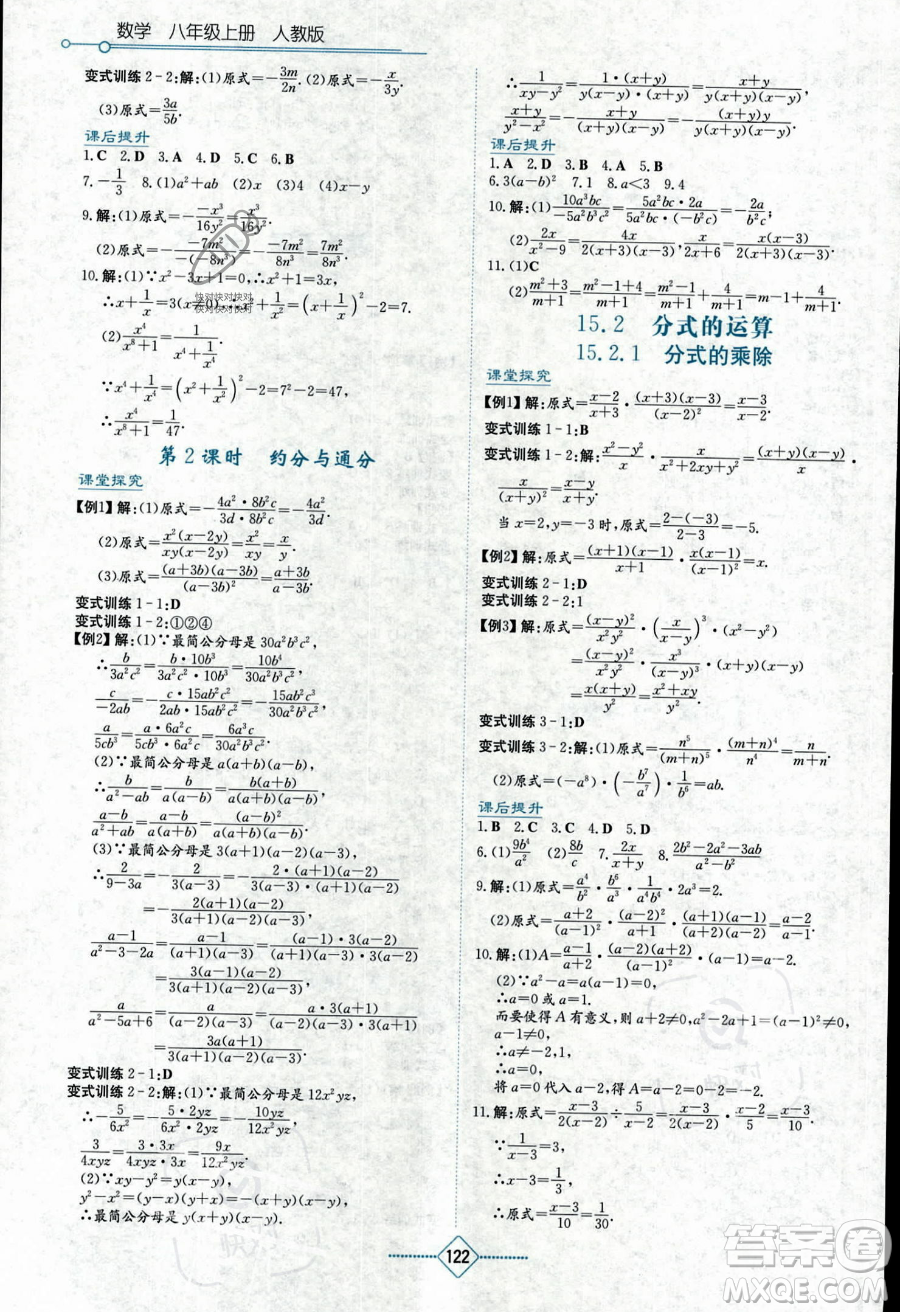 数学 八年级上册 人教版
变式训练2-2:解:(1)原式=-3m/2n. (2)原式=-x/3y.
(3)原式=3a/5b.
课后提升
1.C 2.D 3.A 4.D 5.C 6.B
7.-1/3 8.(1)a²+ab (2)x (3)4 (4)x-y
9.解:(1)原式=-(-x³)/16y²=x³/16y².
(2)原式=-(-7m²)/(-8n³)=-7m²/8n³.
10.解:(1)∵x²-3x+1=0,∴x²+1=3x,
∴x+1/x=3(x≠0).∴x²+1/x²=(x+1/x)²-2=7.
(2)x⁴/(x⁸+1)=1/(x⁴+1/x⁴),
∵x⁴+1/x⁴=(x²+1/x²)²-2=7²-2=47,
∴x⁴/(x⁸+1)=1/47.
第2课时 约分与通分
课堂探究
【例1】解:(1)原式=-(4a²·8b²c)/(3d·8b²c)=-4a²/3d.
(2)原式=x²(x-2y)/xy(x-2y)=x/y.
(3)原式=(a+3b)(a-3b)/(a-3b)²=(a+3b)/(a-3b).
变式训练1-1:D
变式训练1-2:①②④
【例2】解:(1)∵最简公分母是30a²b³c²,
∴b/3a²c²=(b·10b³)/(3a²c²·10b³)=10b⁴/30a²b³c²,
c/-2ab=-(c·15ab²c²)/(2ab·15ab²c²)=-15ab²c³/30a²b³c²,
a/5cb³=(a·6a²c)/(5cb³·6a²c)=6a³c/30a²b³c².
(2)∵最简公分母是a(a+b)(a-b),
∴b/(a²-ab)=b/a(a-b)=b(a+b)/a(a+b)(a-b),
a-b/(a²+ab)=(a-b)/a(a+b)=(a-b)²/a(a+b)(a-b).
(3)∵最简公分母是3(a+1)(a-2)(a-3),
∴2/(9-3a)=-(2·(a+1)(a-2))/(3(a-3)(a+1)(a-2))
=-2(a+1)(a-2)/3(a+1)(a-2)(a-3),
(a-1)/(a²-3-2a)=(a-1)/(a+1)(a-3)=((a-1)·3(a-2))/((a+1)(a-3)·3(a-2))
=3(a-1)(a-2)/3(a+1)(a-2)(a-3),
a/(a²-5a+6)=a/(a-2)(a-3)=(a·3(a+1))/((a-2)(a-3)·3(a+1))
=3a(a+1)/3(a+1)(a-2)(a-3).
变式训练2-1:D
变式训练2-2:解:(1)∵最简公分母是12x²yz,
∴-5/6x²=-(5·2yz)/(6x²·2yz)=-10yz/12x²yz,
3/4xyz=(3·3x)/(4xyz·3x)=9x/12x²yz.
(2)∵xy-y²=y(x-y),x²-y²=(x+y)(x-y),
∴最简公分母是y(x+y)(x-y).
∴1/(xy-y²)=1·(x+y)/y(x-y)(x+y)=(x+y)/y(x-y)(x+y),
x/(x²-y²)=x·y/(x+y)(x-y)y=xy/y(x+y)(x-y).
课后提升
1.A 2.D 3.B 4.A 5.D
6.3(a-b)² 7.1 8.a<3 9.4
10.解:(1)10a³bc/-5a²b³c²=(5a²bc·2a)/-(5a²bc·b²c)=-2a/b²c;
(2)2x/(x²-9)=4x/2(x+3)(x-3)=2x/(x+3)(x-3).
11.(1)C
(2)(m²+3)/(m+1)=(m²-1+4)/(m+1)=(m²-1)/(m+1)+4/(m+1)=m-1+4/(m+1).
15.2 分式的运算
15.2.1 分式的乘除
课堂探究
【例1】解:原式=(x-2)/(x+3)·(x+3)(x-3)/(x-2)²=(x-3)/(x-2).
变式训练1-1:D
变式训练1-2:解:(x²-y²)/x·x/(x²+2xy+y²)=(x+y)(x-y)/x·
x/(x+y)²=(x-y)/(x+y).
当x=2,y=-3时,原式=(2-(-3))/(2-3)=-5.
【例2】解:原式=(x+1)(x-1)/(x+1)·x(x-1)/(x-1)²=x.
变式训练2-1:D
变式训练2-2:1
【例3】解:原式=(x-y)²/x²y²·(x/(x-y))³·(x²-y²)
=(x-y)²/x²y²·x³/(x-y)³·(x+y)(x-y)
=x(x+y)/y²=(x²+xy)/y².
变式训练3-1:D
变式训练3-2:解:(1)原式=n⁵/(m+n)⁵·(m+n)⁴/n⁴=n/(m+n).
(2)原式=(-a⁸)·(-b⁷/a⁷)·1/b⁵=ab².
课后提升
1.B 2.C 3.C 4.D 5.D
6.(1)9b⁴/a² (2)8b/c 7.2x/(x+2) 8.(2b²-2a²-3ab)/(a²+ab)
9.解:(1)原式=a⁴/b²·b⁶/a³·1/a⁴b⁴·2a³=2.
(2)原式=(a+2)/(a-1)²·(a-2)/(a+2)·(a+1)(a-1)/(a+1)=(a-2)/(a-1).
10.解:(1)A=(a-1)/(a+2)·(a-2)(a+2)/(a-1)²·(a-1)=a-2.
(2)∵a²-a=0,
∴a=0或a=1.
而要使得A有意义,则a+2≠0,a²-2a+1=(a-1)²≠0,
a-1≠0.
∴a=0.
将a=0代入A,得A=a-2=-2.
11.解:原式=(x-3)/2(x-2)÷5/(x-2)=(x-3)/2(x-2)·(x-2)/5=(x-3)/10.
∵1/(x-3)=3,
∴x-3=1/3.
∴原式=(x-3)/10=1/30.
122
答案圈
MXQE.COM
快对快对快对
快对快对快对